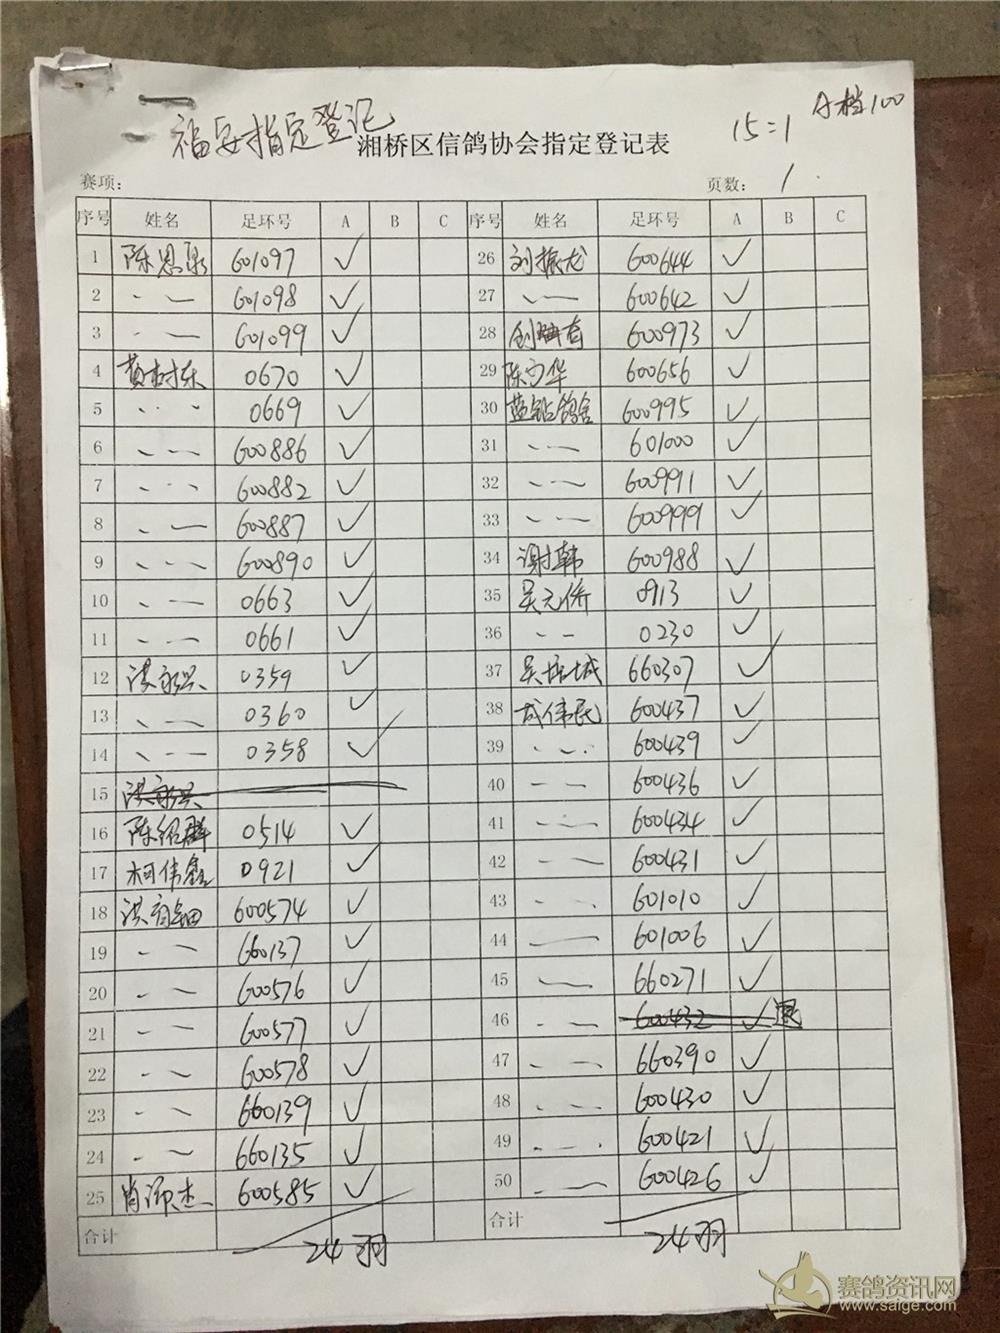 A档100
15=1
福安指定登记
湘桥区信鸽协会指定登记表
赛项: 页数: 1
序号 姓名 足环号 A B C 序号 姓名 足环号 A B C
1 陈恩泉 601097 ✓ 26 刘振龙 600644 ✓
2 601098 ✓ 27 600642 ✓
3 601099 ✓ 28 600973 ✓
4 黄树东 0670 ✓ 29 陈守华 600656 ✓
5 0669 ✓ 30 蓝钻鸽舍 600995 ✓
6 600886 ✓ 31 601000 ✓
7 600882 ✓ 32 600991 ✓
8 600887 ✓ 33 600999 ✓
9 600890 ✓ 34 谢韩 600988 ✓
10 0663 ✓ 35 吴元侨 0913 ✓
11 0661 ✓ 36 0230 ✓
12 洪永兴 0359 ✓ 37 吴培城 660307 ✓
13 0360 ✓ 38 成伟民 600437 ✓
14 0358 ✓ 39 600439 ✓
15 洪永兴 40 600436 ✓
16 陈绍群 0514 ✓ 41 600434 ✓
17 柯伟鑫 0921 ✓ 42 600431 ✓
18 600574 ✓ 43 601010 ✓
19 660137 ✓ 44 601006 ✓
20 600576 ✓ 45 660271 ✓
21 600577 ✓ 46 600432 ✓ 退
22 600578 ✓ 47 660390 ✓
23 660139 ✓ 48 600430 ✓
24 660135 ✓ 49 600421 ✓
25 600585 ✓ 50 600426 ✓
合计 24羽 合计 24羽
赛鸽资讯网
www.saige.com